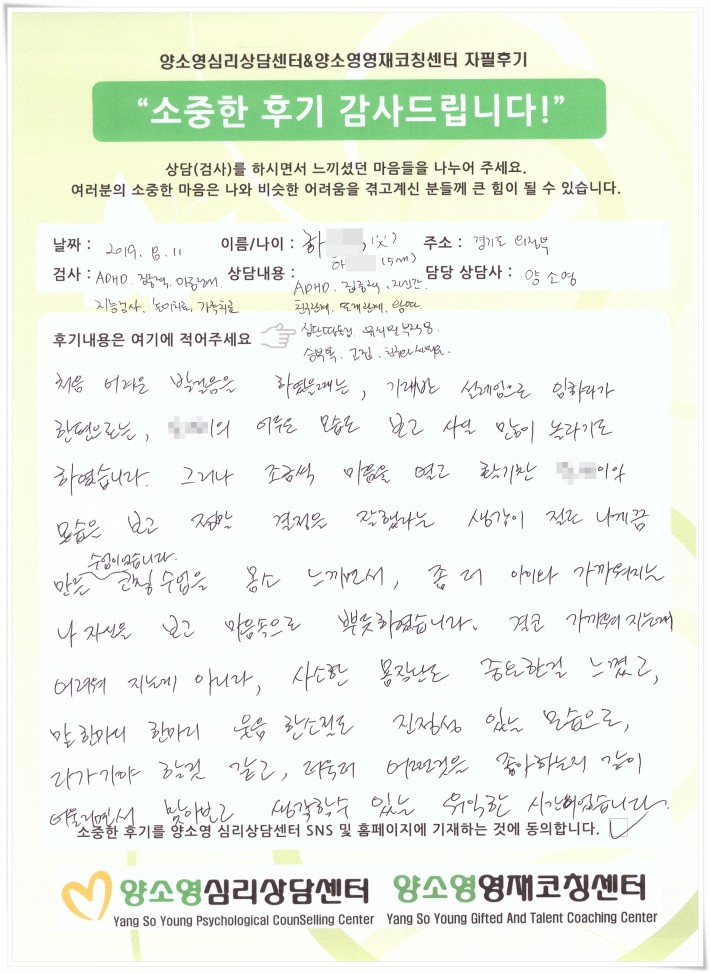 양소영심리상담센터&양소영영재코칭센터 자필후기
“소중한 후기 감사드립니다!”
상담(검사)를 하시면서 느끼셨던 마음들을 나누어 주세요.
여러분의 소중한 마음은 나와 비슷한 어려움을 겪고계신 분들께 큰 힘이 될 수 있습니다.
날짜 : 2019. 8. 11 이름/나이 : 하 (父) 주소 : 경기도 의정부
하 (5세)
검사 : ADHD. 집중력. 상담내용 : ADHD. 집중력. 담당 상담사 : 양 소영
지능검사, 놀이치료, 가족치료 친구관계. 또래관계. 왕따
후기내용은 여기에 적어주세요 집단따돌림. 유치원 부적응.
승부욕. 고집.
처음 어려운 발걸음을 하였을때는, 기대반 설레임으로 임하다가
한편으로는, 이의 어두운 모습도 보고 사실 많이 놀라기도
하였습니다. 그러나 조금씩 마음을 열고 활기찬 이의
모습을 보고 정말 결정을 잘했다는 생각이 절로 나게끔
수업이었습니다.
만든 코칭 수업을 몸소 느끼면서, 좀 더 아이와 가까워지는
나 자신을 보고 마음속으로 뿌듯하였습니다. 결코 가까워 지는게
어려워 지는게 아니라, 사소한 몸장난도 중요한걸 느꼈고,
말 한마디 한마디 웃음 한소절도 진정성 있는 모습으로,
다가가야 할것 같고, 더욱더 어떤것을 좋아하는지 같이
어울리면서 맞아보고 생각할수 있는 유익한 시간이었습니다.
소중한 후기를 양소영 심리상담센터 SNS 및 홈페이지에 기재하는 것에 동의합니다.
양소영심리상담센터 양소영영재코칭센터
Yang So Young Psychological CounSelling Center Yang So Young Gifted And Talent Coaching Center